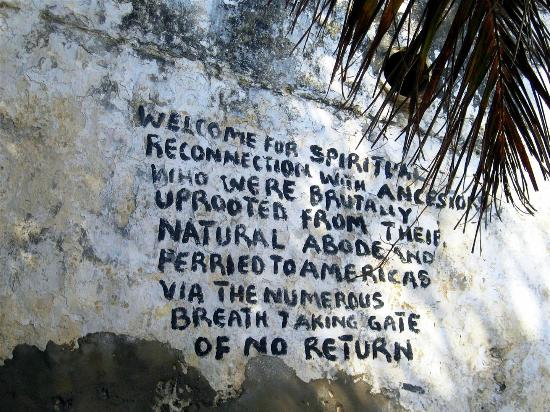 WELCOME FOR SPIRITUAL
RECONNECTION WITH ANCESTOR
WHO WERE BRUTALLY
UPROOTED FROM THEIR
NATURAL ABODE AND
FERRIED TO AMERICAS
VIA THE NUMEROUS
BREATH TAKING GATE
OF NO RETURN